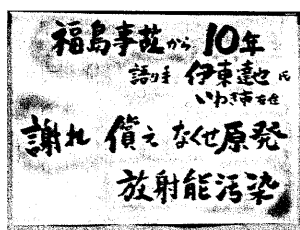 福島事故から10年
語り手 伊東達也 氏
いわき市在住
謝れ 償え なくせ原発
放射能汚染